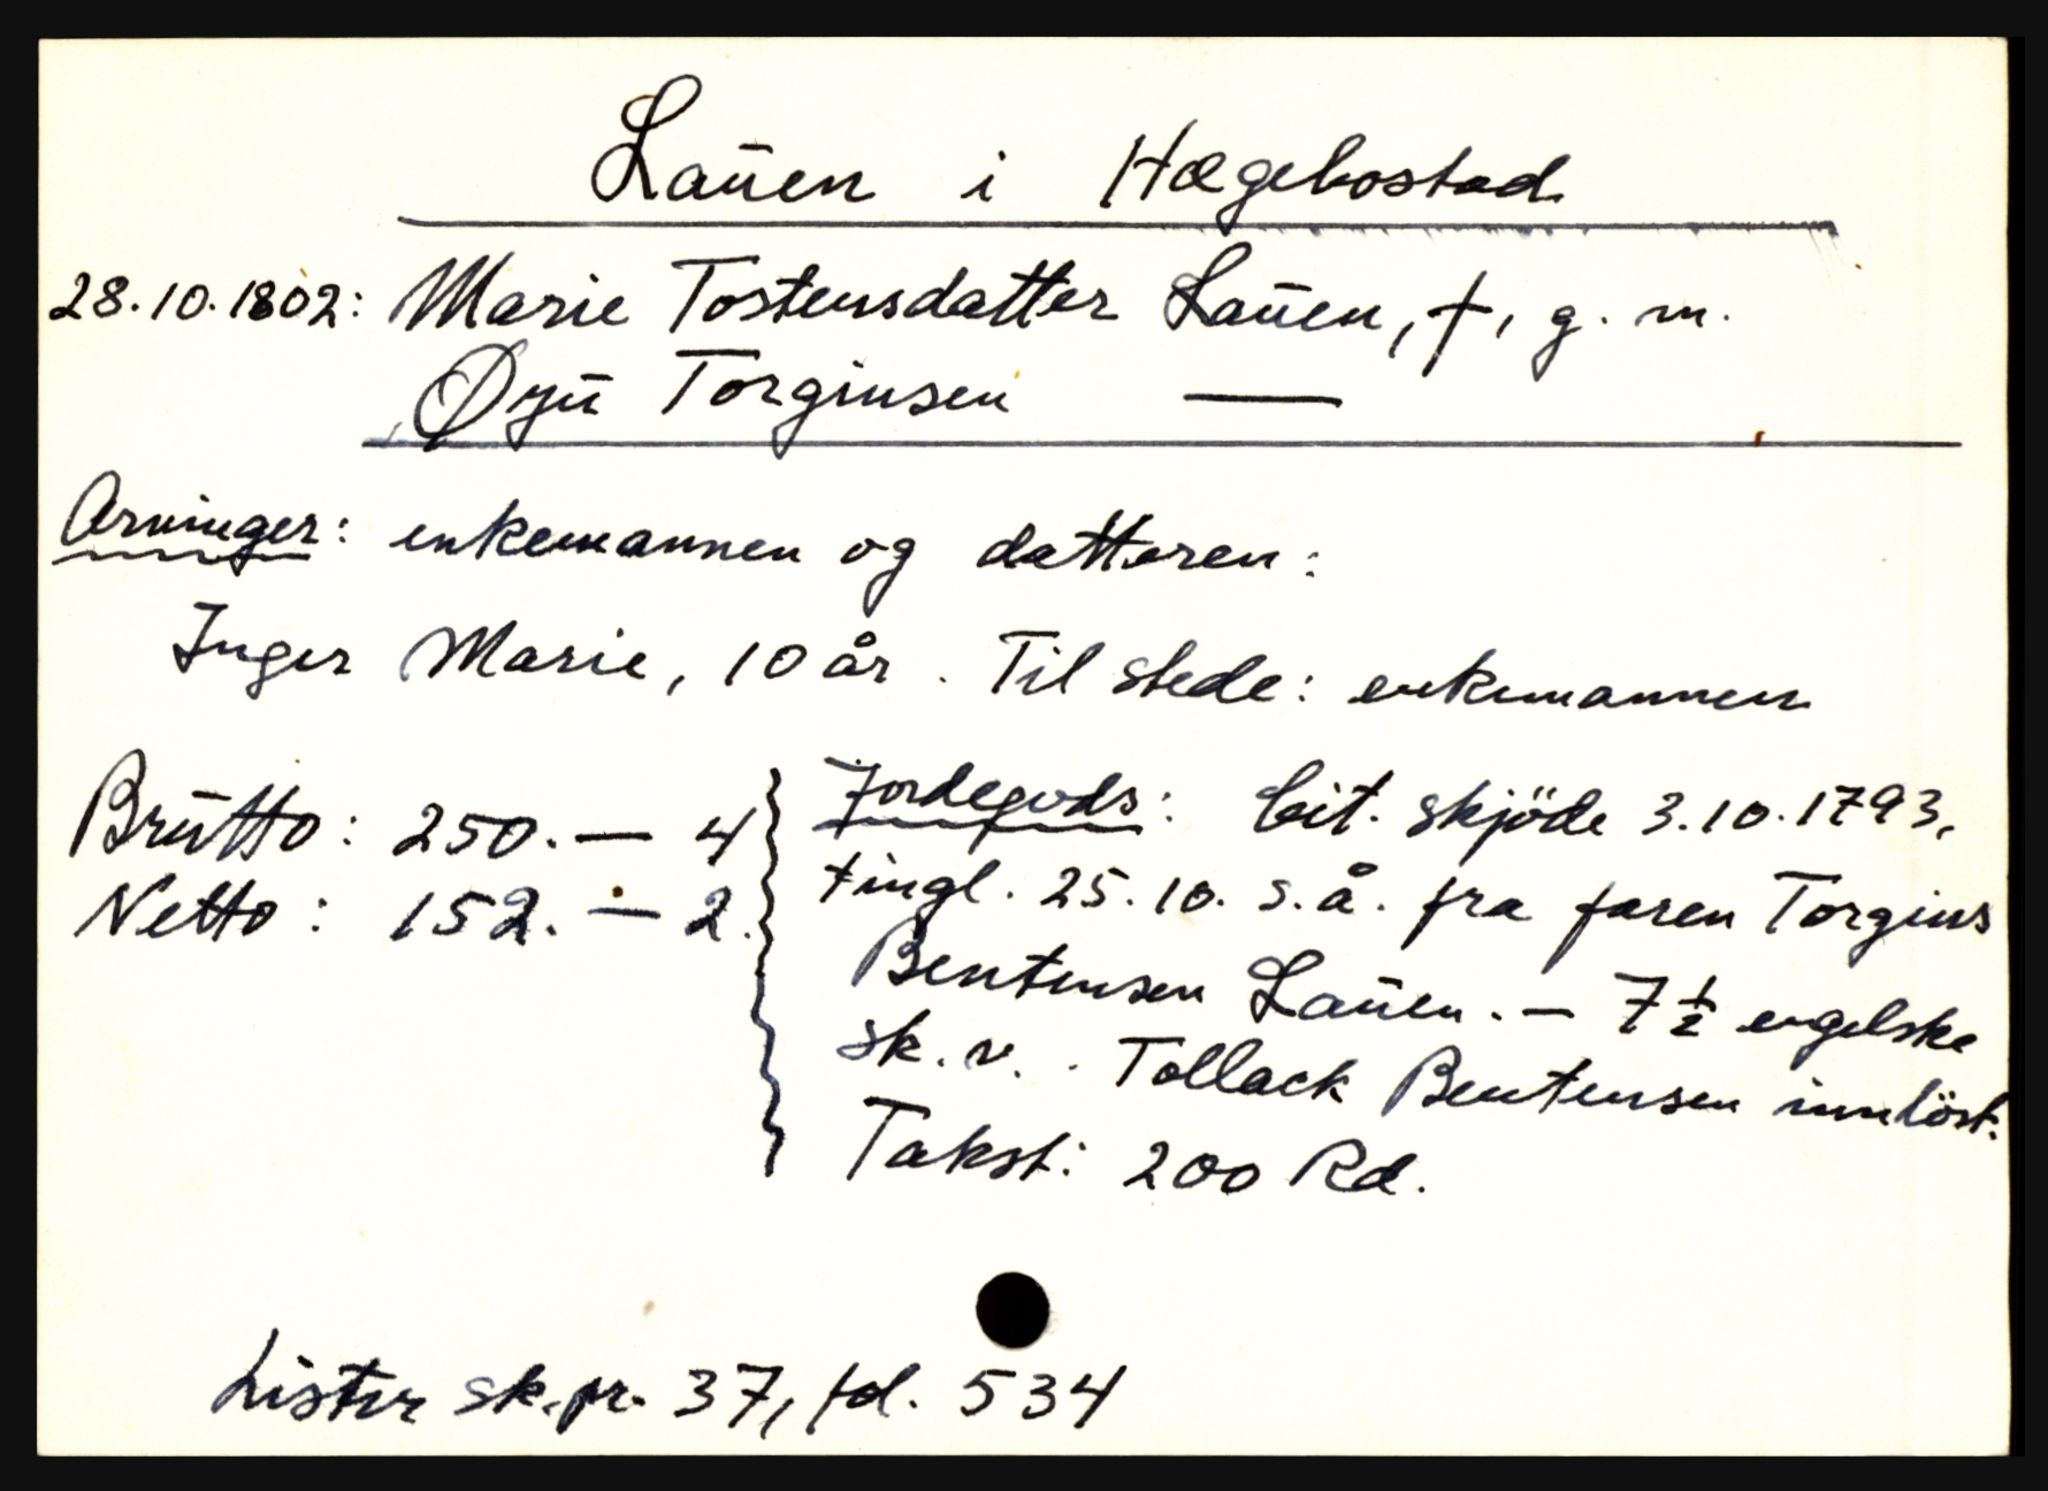 Lauen i Hægebostad
28.10.1802: Marie Tostensdatter Lauen, †, g. m.
Øyu Torginsen —
Arvinger: enkemannen og datteren:
Inger Marie, 10 år. Til stede: enkemannen
Brutto: 250. — 4
Netto: 152. — 2.
Jordegods: bit. skjöde 3.10.1793,
tingl. 25.10. s.å. fra faren Torgius
Bentensen Lauen. — 7 1/2 engelske
sk. v. . Tollack Bentensen innlöst.
Takst: 200 Rd.
Lister sk.pr. 37, fol. 534